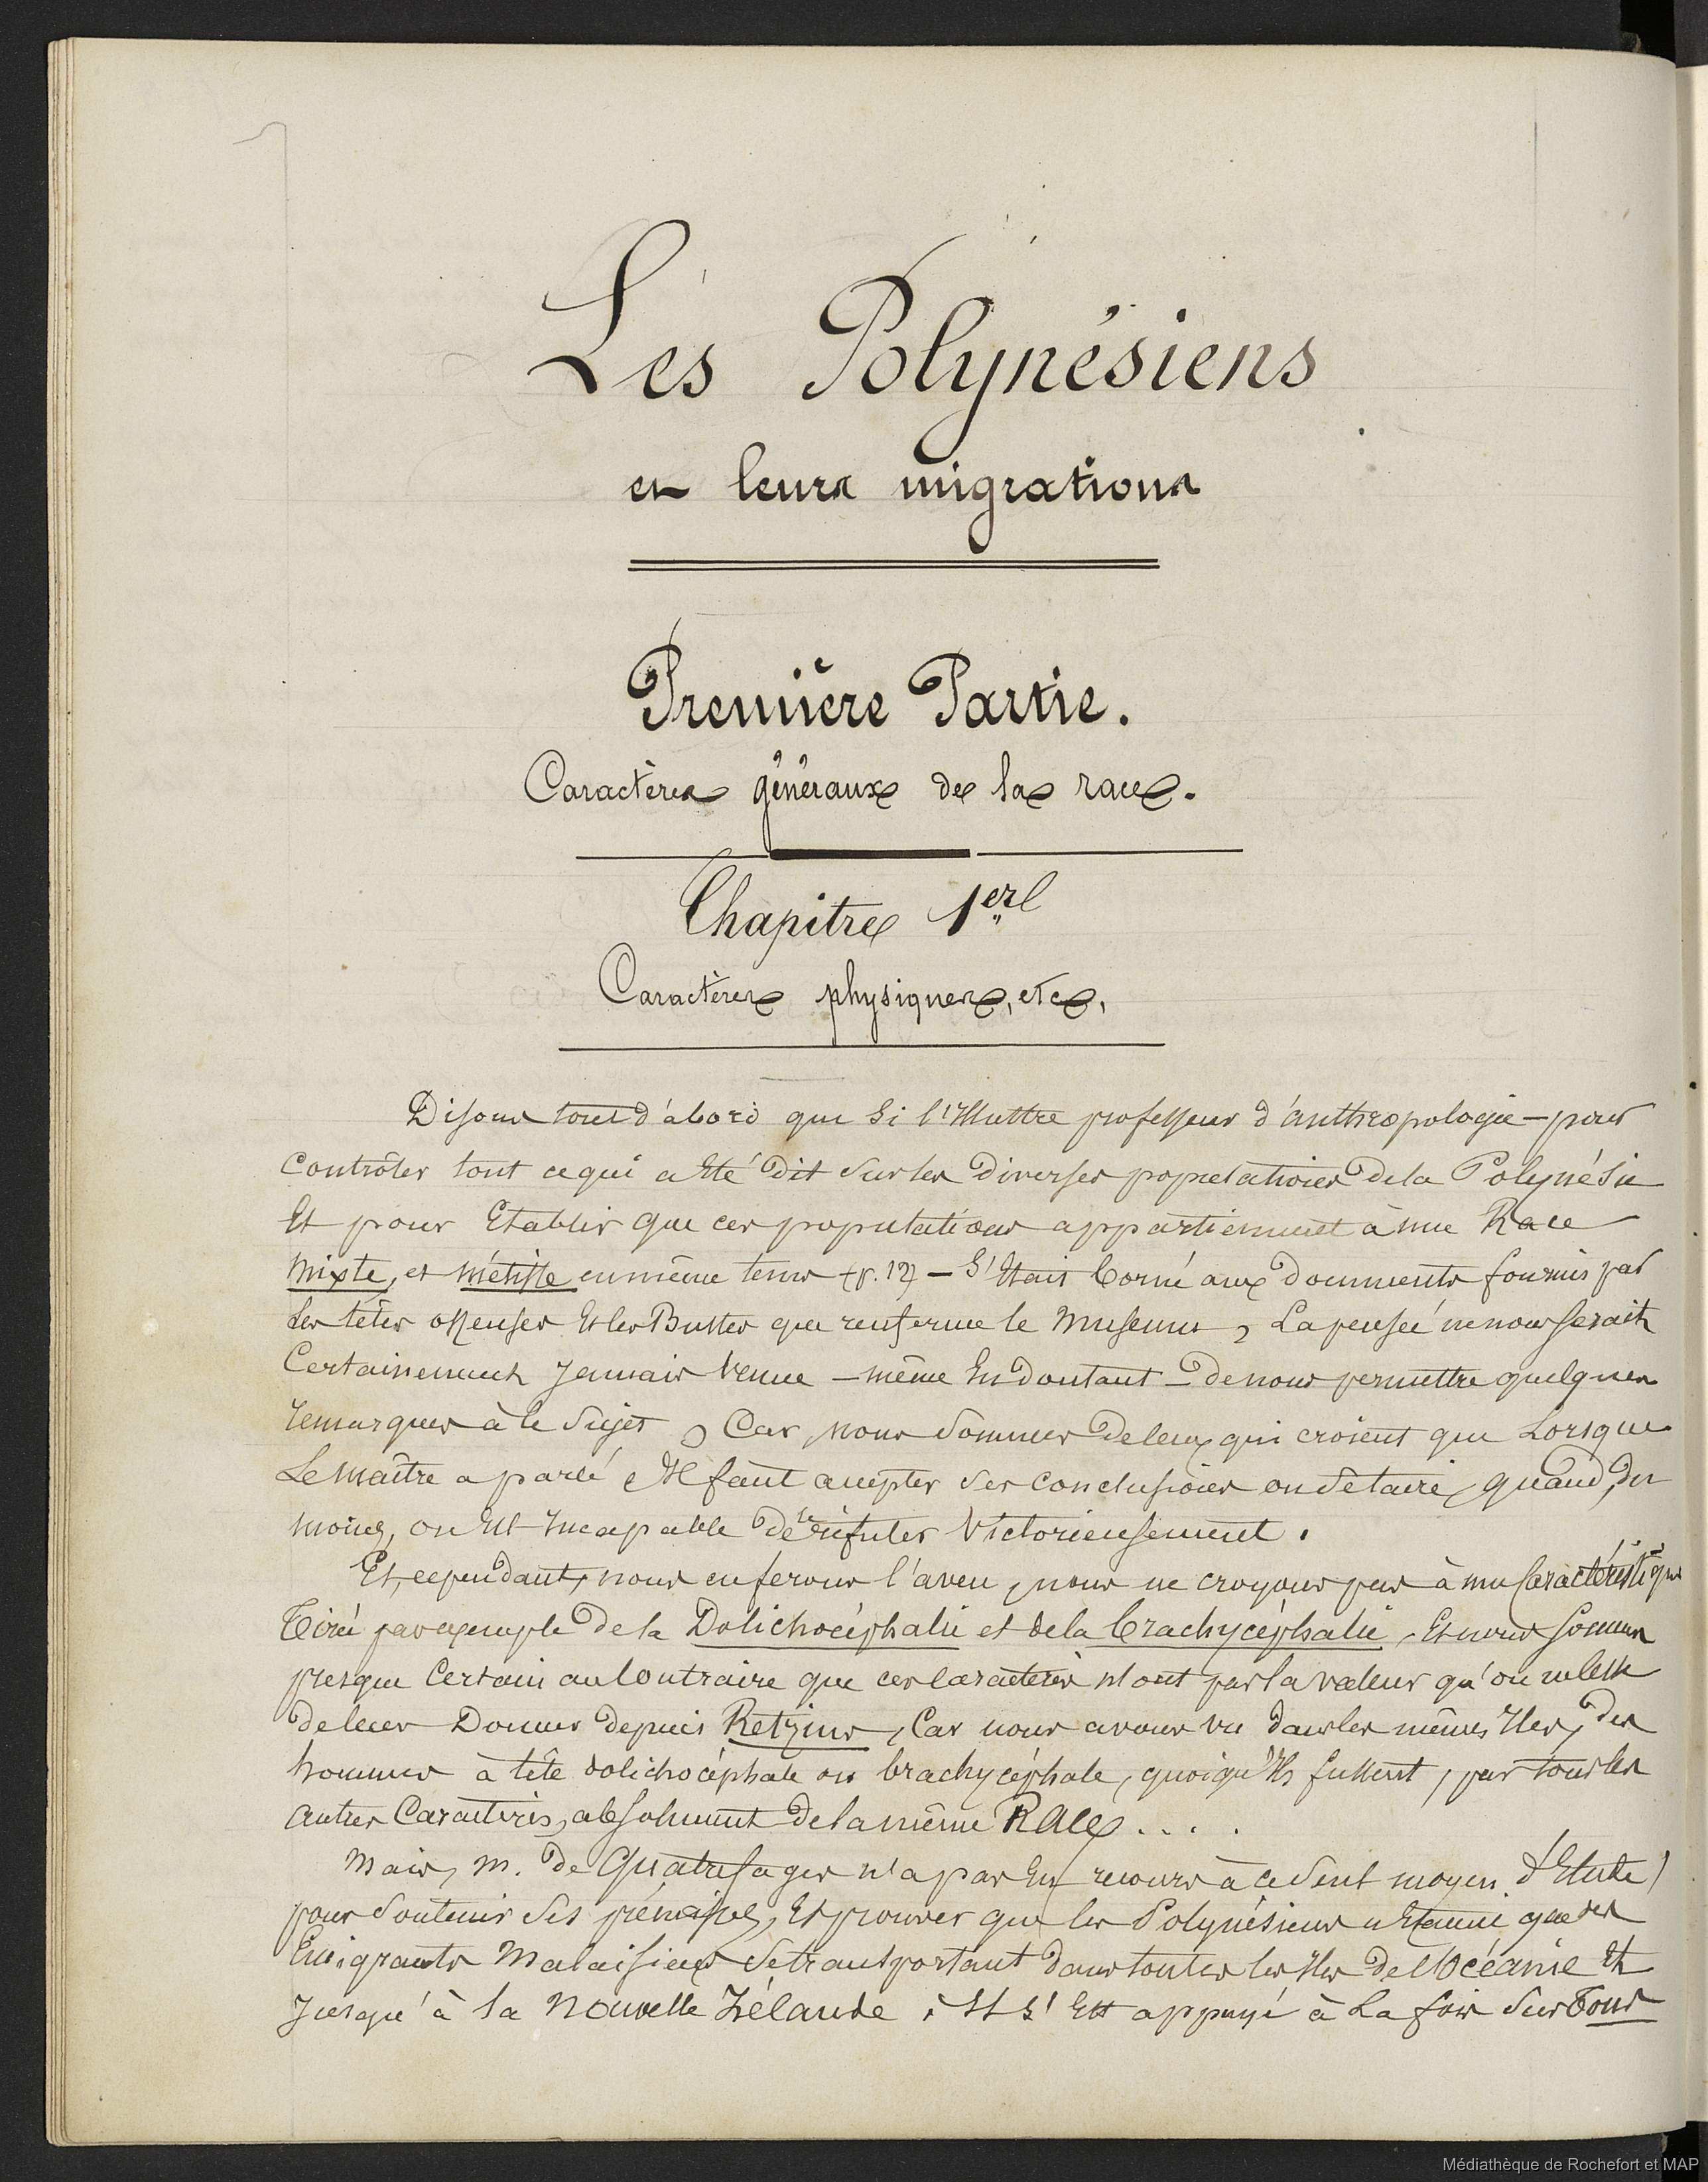 Les Polynésiens
et leurs migrations
Première Partie.
Caractères généraux de la race.
Chapitre 1er
Caractères physiques, etc.
Disons tout d'abord que si l'Illustre professeur d'anthropologie – pour
Contrôler tout ce qui a Eté Dit sur les Diverses populations de la Polynésie
Et pour Etablir que ces populations appartiennent à une Race
mixte, et métisse en même tems (p. 12) – S'Etait borné aux Documents fournis par
les têtes osseuses Et les Bustes que renferme le Museum, La pensée ne nous serait
Certainement Jamais venue – même En doutant – de nous permettre quelques
remarques à ce sujet, Car, nous sommes de ceux qui croient que Lorsque
Le maître a parlé Il faut accepter ses conclusions ou se taire, quand, du
moins, on Est Incapable de le réfuter Victorieusement.
Et, cependant, nous en ferons l'aveu, nous ne croyons pas à une Caractéristique
Tirée par exemple de la Dolichocéphalie et de la brachycéphalie, Et nous sommes
presque Certain au Contraire que ces caractères n'ont pas la valeur qu'on
de leur Donner depuis Retzius, Car nous avons vu dans les mêmes Iles, des
hommes à tête dolichocéphale ou brachycéphale, quoiqu'Ils fussent, par tous les
autres Caractères, absolument de la même Race. . . .
Mais, M. de Quatrefages n'a pas Eu recours à ce seul moyen d'Etude
pour soutenir ses Et prouver que les Polynésiens n'Etaient que des
Emigrants Malaisiens se transportant dans toutes les Iles de l'Océanie Et
Jusqu'à la Nouvelle Zélande ; Il s'Est appuyé à La fois sur Tous
Médiathèque de Rochefort et MAP